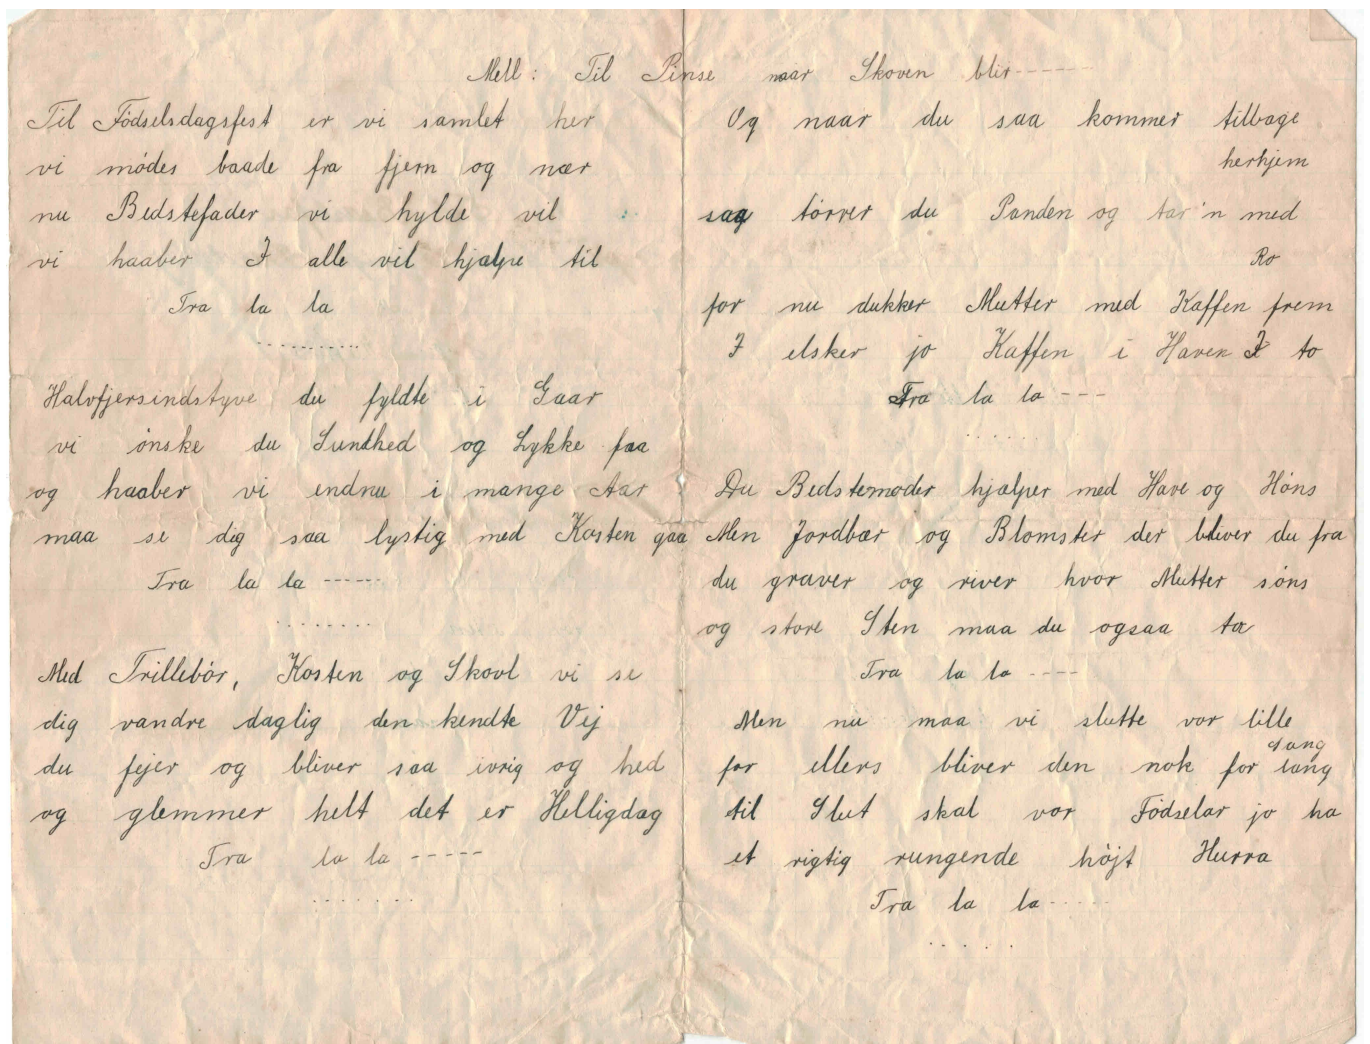 Mell: Til Pinse naar Skoven blir-----
Til Födselsdagsfest er vi samlet her
vi mödes baade fra fjern og nær
nu Bedstefader vi hylde vil
vi haaber I alle vil hjælpe til
Tra la la
..........
Halvfjersindstyve du fyldte i Gaar
vi önske du Sundhed og Lykke faa
og haaber vi endnu i mange Aar
maa se dig saa lystig med Kosten gaa
Tra la la -----
........
Med Trillebör, Kosten og Skovl vi se
dig vandre daglig den kendte Vej
du fejer og bliver saa ivrig og hed
og glemmer helt det er Helligdag
Tra la la -----
.......
Og naar du saa kommer tilbage
herhjem
saa törrer du Panden og tar'n med
Ro
for nu dukker Mutter med Kaffen frem
I elsker jo Kaffen i Haven I to
Tra la la ---
......
Du Bedstemoder hjælper med Have og Höns
Men Jordbær og Blomster der bliver du fra
du graver og river hvor Mutter söns
og store Sten maa du ogsaa ta
Tra la la ----
Men nu maa vi slutte vor lille
Sang
for ellers bliver den nok for lang
til Slut skal vor Födselar jo ha
et rigtig rungende höjt Hurra
Tra la la-----
.....